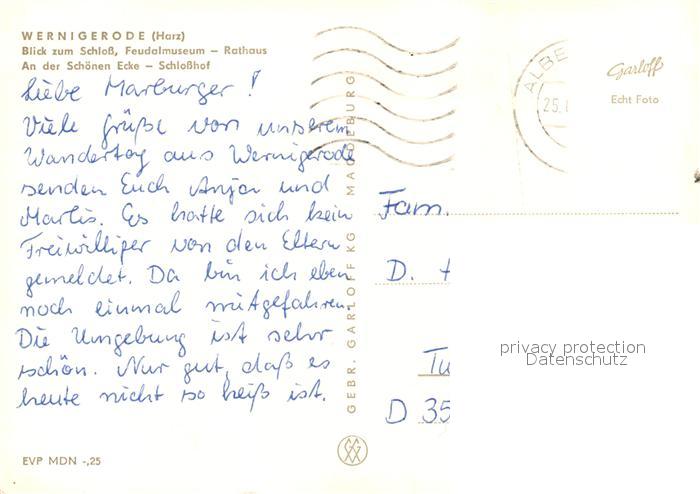 WERNIGERODE (Harz)
Blick zum Schloß, Feudalmuseum – Rathaus
An der Schönen Ecke – Schloßhof
Liebe Marburger!
Viele Grüße von unserem
Wandertag aus Wernigerode
senden Euch Anja und
Marlis. Es hatte sich kein
Freiwilliger von den Eltern
gemeldet. Da bin ich eben
noch einmal mitgefahren.
Die Umgebung ist sehr
schön. Nur gut, daß es
heute nicht so heiß ist.
EVP MDN -,25
GEBR. GARLOFF KG MAGDEBURG
ALBE
25.
Garloff
Echt Foto
Fam.
D. +
Tu
D 35
privacy protection
Datenschutz